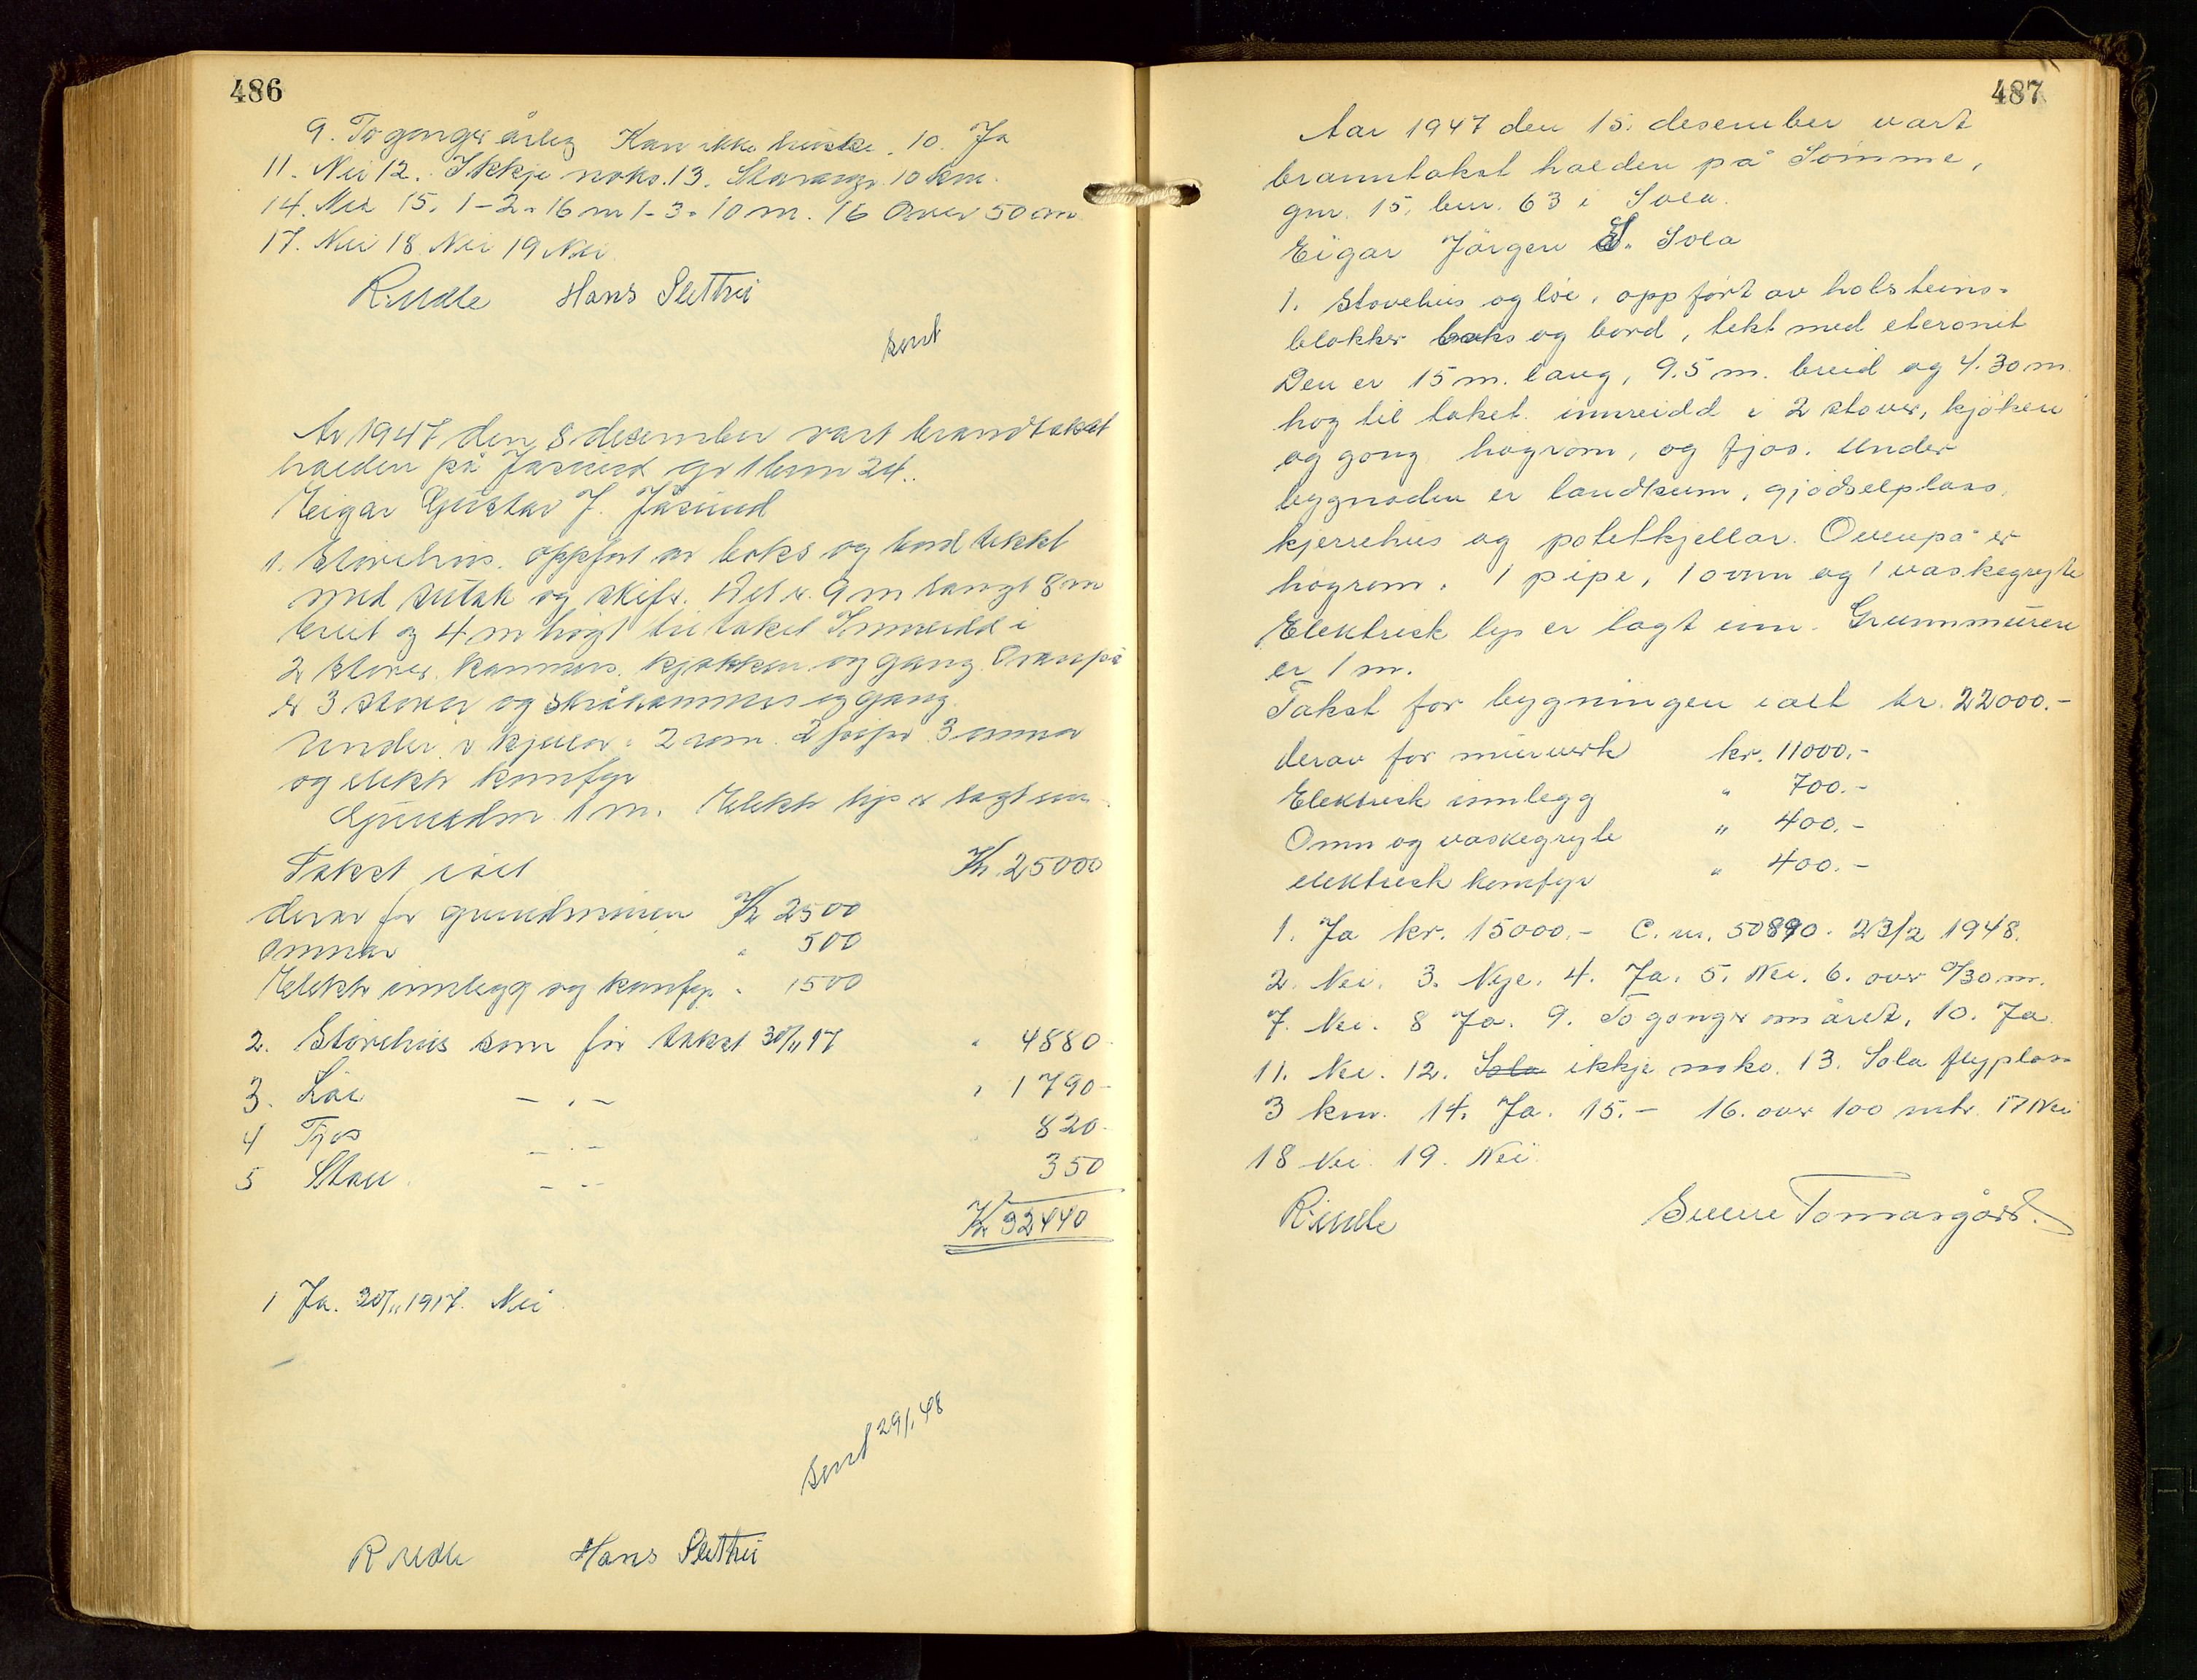 486
9. To gonger årleg Kan ikke huske. 10. Ja
11. Nei 12. Ikkje noko. 13. Stavanger 10 km.
14. Nei 15. 1-2 = 16 m 1-3 = 10 m. 16 Over 50 cm
17. Nei 18 Nei 19 Nei
Hans Slettrei
sent
År 1947 den 8 desember vart brandtakst
halden på Jåsund gr 1 bnr 24.
Eigar Gustav J. Jåsund
1. Storehus. oppfort av boks og bord tekkt
med sutak og skifer. Det er 9 m langt 8 m
breit og 4 m høgt til taket Innreidd i
2 stover. kammers. kjøkken og gang. Ovenpå
er 3 stover og skråkammer og gang.
Under er kjellar 2 rom. 2 piper 3 omnar
og elektr komfyr
1 m. Elektr lys er lagt inn.
Takst ialt Kr 25000
derav for grundmuren Kr 2500
Omnar " 500
Elektr innlegg og komfyr " 1500
2. Storehus som før takst 30/11 17 " 4880-
3. Løe — " — " 1790-
4 Fjos — " — 820-
5 Stall — " — 350
Kr 32440
1 Ja. 30/11 1917. Nei
sent 29/1 48
Hans Slettrei
487
Aar 1947 den 15. desember vart
branntakst halden på Sømme,
gnr. 15, bnr. 63 i Sola.
Eigar Jørgen S. Sola
1. Stovehus og løe, oppført av holsteins-
blokker boks og bord, tekt med eteronit
Den er 15 m. lang, 9.5 m. breid og 4.30 m.
høg til taket. innreidd i 2 stover, kjøken
og gong høyrom, og fjos. Under
bygnaden er landkum, gjødselplass,
kjerrehus og potetkjellar. Ovenpå er
høyrom. 1 pipe, 1 ovnn og 1 vaskegryte
Elektrisk lys er lagt inn. Grunnmuren
er 1 m.
Takst for bygningen ialt kr. 22000.-
derav for murverk kr. 11000.-
Elektrisk innlegg " 700.-
Omn og vaskegryte " 400.-
elektrisk komfyr " 400.-
1. Ja kr. 15000.- C. m. 50890. 23/2 1948.
2. Nei. 3. Nye. 4. Ja. 5. Nei. 6. over 0/30 m.
7. Nei. 8 Ja. 9. To gonger om året. 10. Ja.
11. Nei. 12. Sola ikkje noko. 13. Sola flyplass
3 km. 14. Ja. 15. - 16. over 100 mtr. 17 Nei
18 Nei. 19. Nei.
Tomasgård.